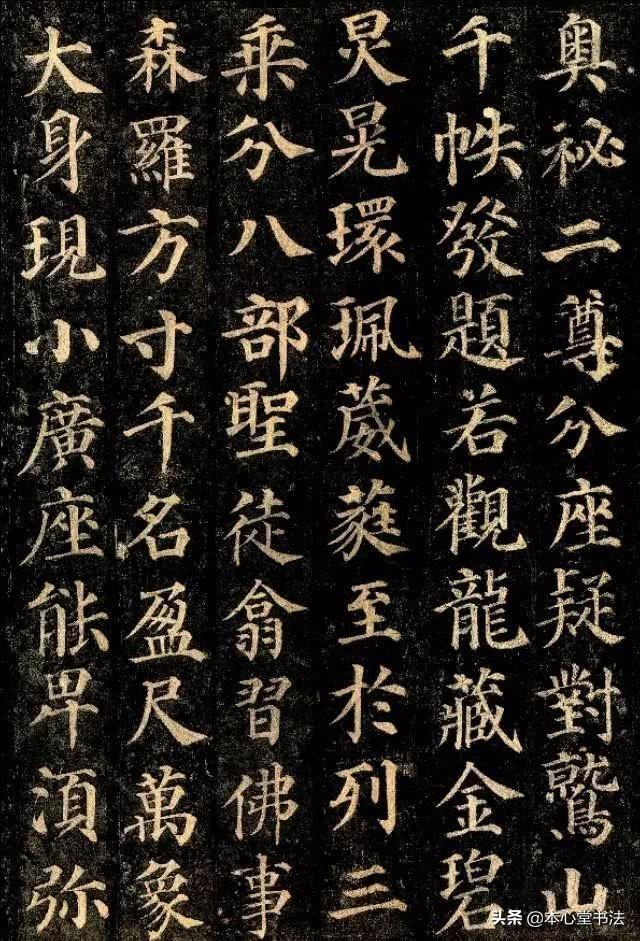 奥祕二尊分座疑對鷲山
千帙發題若觀龍藏金碧
炅晃環珮葳蕤至於列三
乘分八部聖徒翕習佛事
森羅方寸千名盈尺萬象
大身現小廣座能卑湏弥
头条@本心堂书法